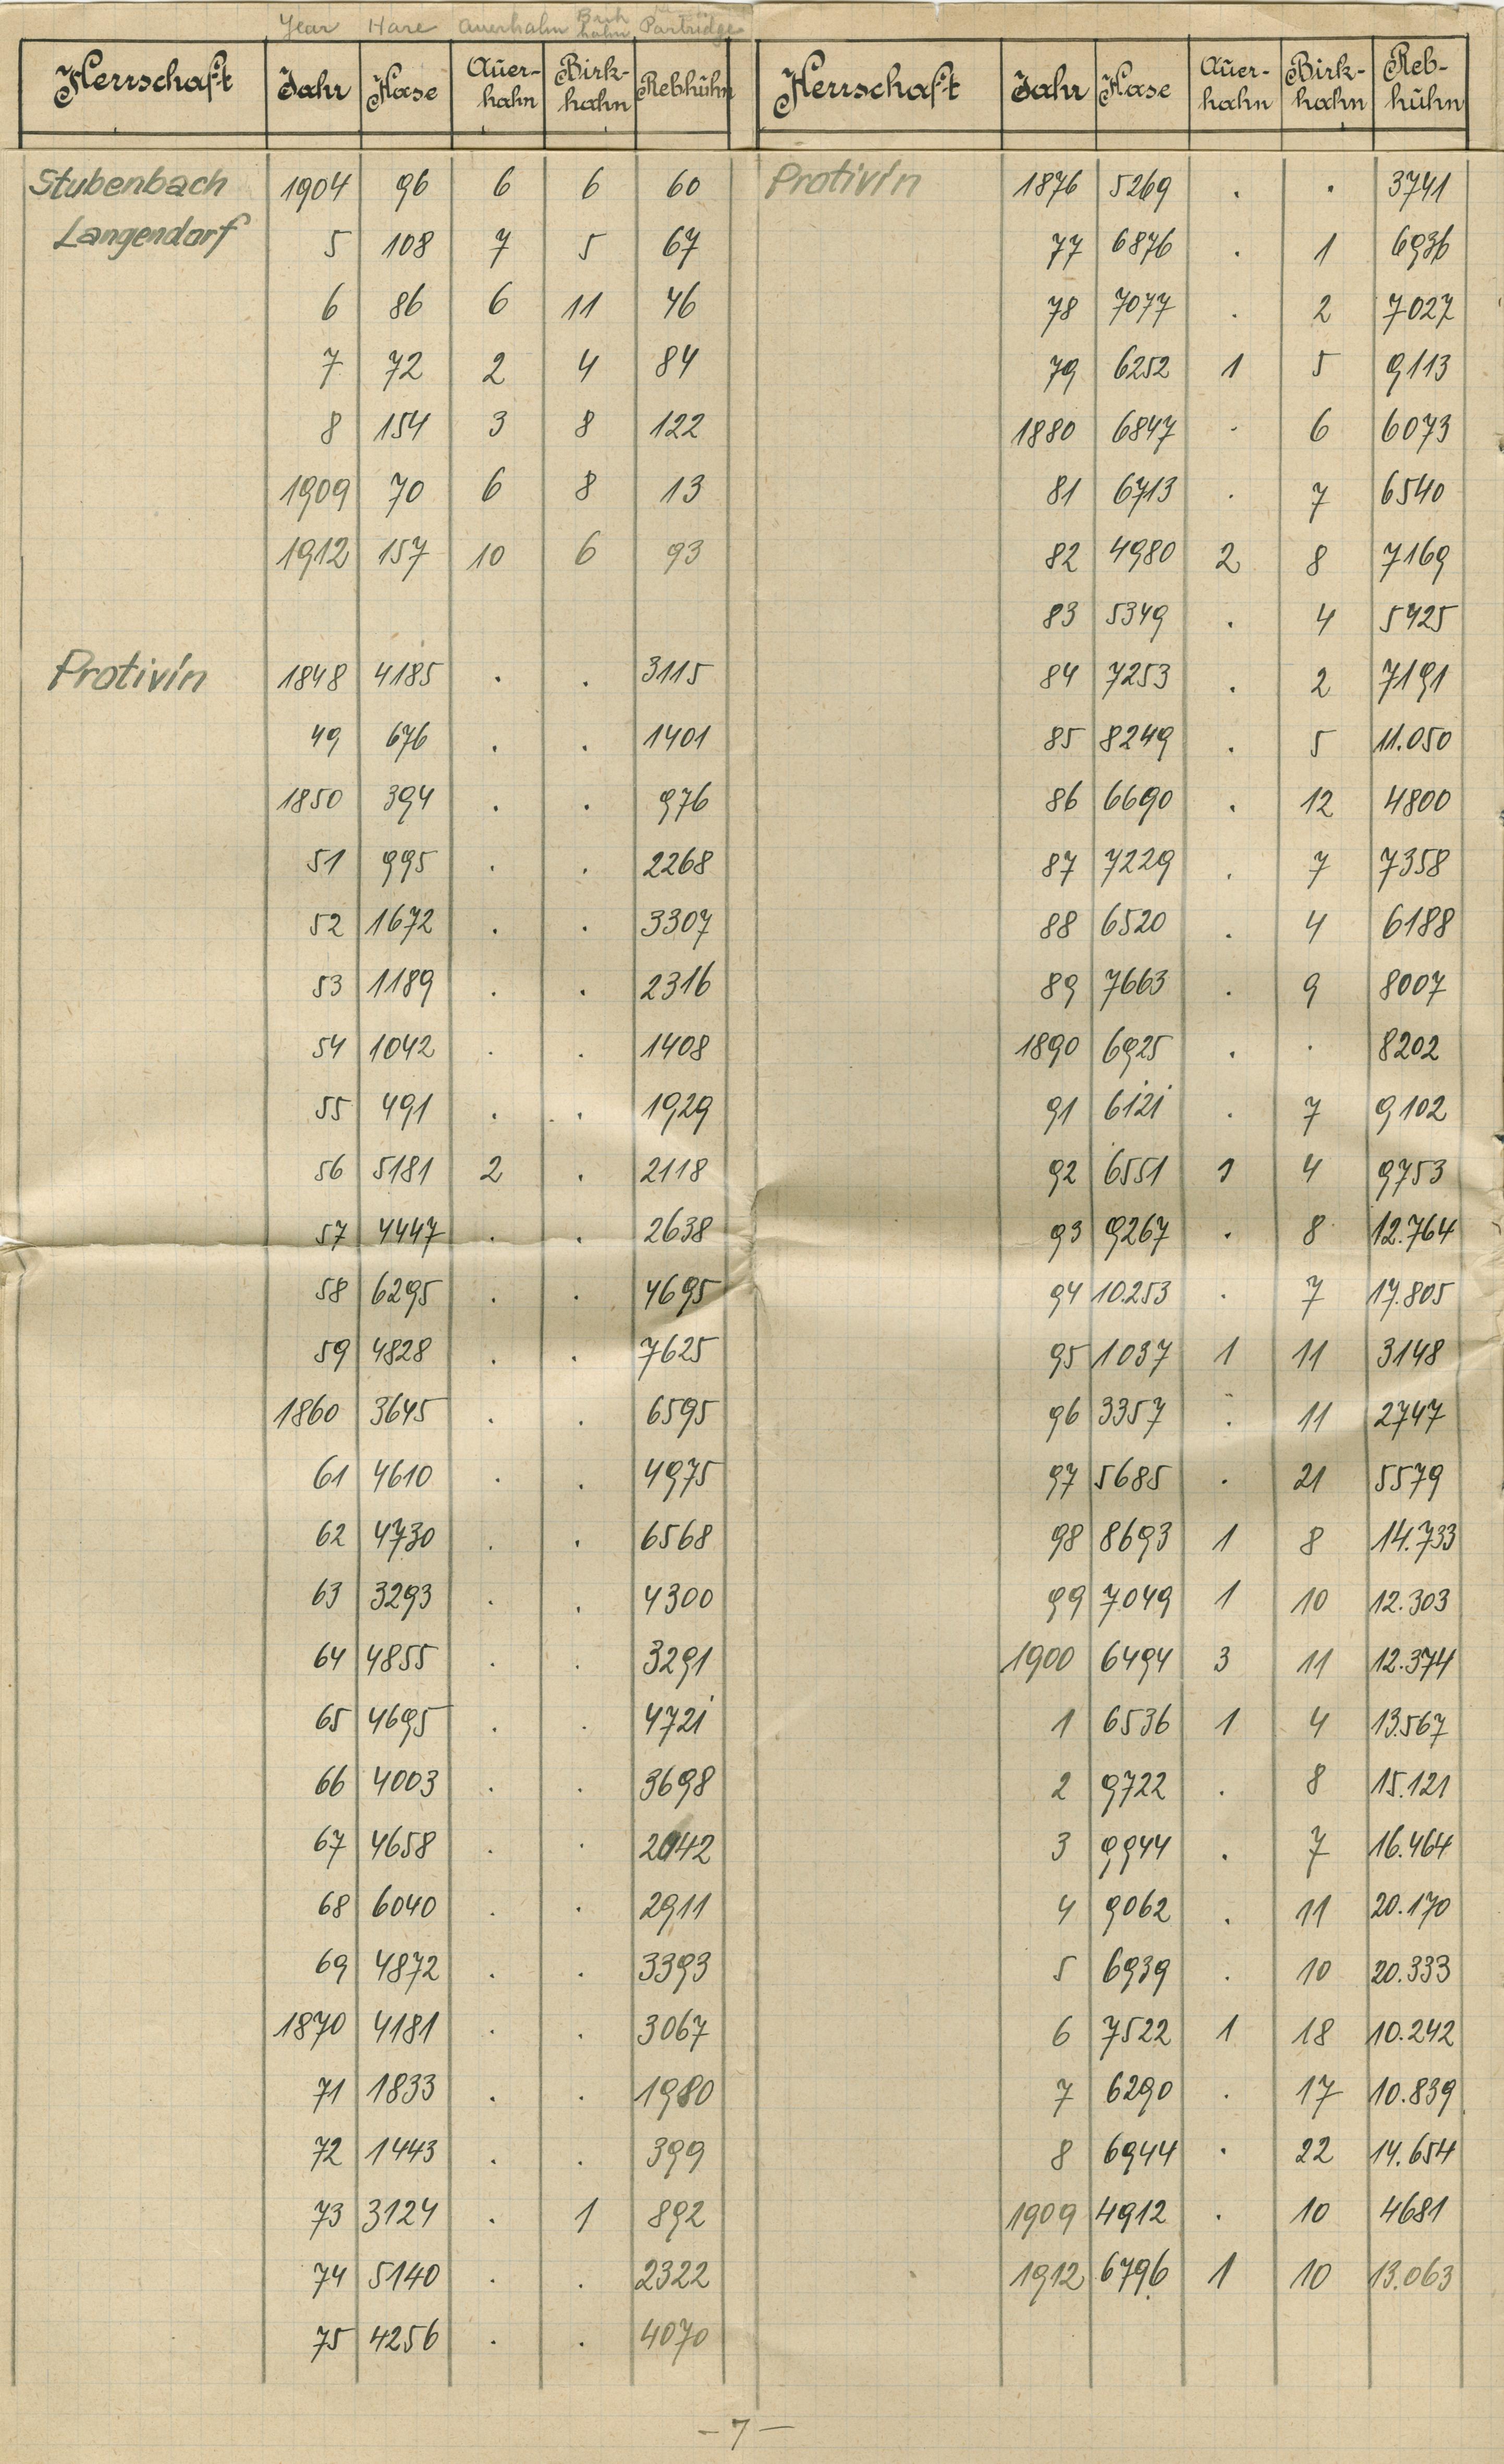 Year Hare Auerhahn Birkhahn Partridge
Herrschaft Jahr Hase Auer-hahn Birk-hahn Rebhuhn
Stubenbach 1904 96 6 6 60
Langendorf 5 108 7 5 67
6 86 6 11 46
7 72 2 4 84
8 154 3 8 122
1909 70 6 8 13
1912 157 10 6 93
Protivín 1848 4185 . . 3115
49 676 . . 1401
1850 394 . . 976
51 995 . . 2268
52 1672 . . 3307
53 1189 . . 2316
54 1042 . . 1408
55 491 . . 1929
56 5181 2 . 2118
57 4447 . . 2638
58 6295 . . 4695
59 4828 . . 7625
1860 3645 . . 6595
61 4610 . . 4975
62 4730 . . 6568
63 3293 . . 4300
64 4855 . . 3291
65 4695 . . 4721
66 4003 . . 3698
67 4658 . . 2042
68 6040 . . 2911
69 4872 . . 3393
1870 4181 . . 3067
71 1833 . . 1980
72 1443 . . 399
73 3124 . 1 892
74 5140 . . 2322
75 4256 . . 4070
Herrschaft Jahr Hase Auer-hahn Birk-hahn Reb-huhn
Protivín 1876 5269 . . 3741
77 6876 . 1 6936
78 7077 . 2 7027
79 6252 1 5 9113
1880 6847 . 6 6073
81 6713 . 7 6540
82 4980 2 8 7169
83 5349 . 4 5425
84 7253 . 2 7191
85 8249 . 5 11.050
86 6690 . 12 4800
87 7229 . 7 7358
88 6520 . 4 6188
89 7663 . 9 8007
1890 6925 . . 8202
91 6121 . 7 9102
92 6551 1 4 9753
93 9267 . 8 12.764
94 10.253 . 7 17.805
95 1037 1 11 3148
96 3357 . 11 2747
97 5685 . 21 5579
98 8693 1 8 14.733
99 7049 1 10 12.303
1900 6494 3 11 12.374
1 6536 1 4 13.567
2 9722 . 8 15.121
3 9944 . 7 16.464
4 9062 . 11 20.170
5 6939 . 10 20.333
6 7522 1 18 10.242
7 6290 . 17 10.839
8 6944 . 22 14.654
1909 4912 . 10 4681
1912 6796 1 10 13.063
- 7 -